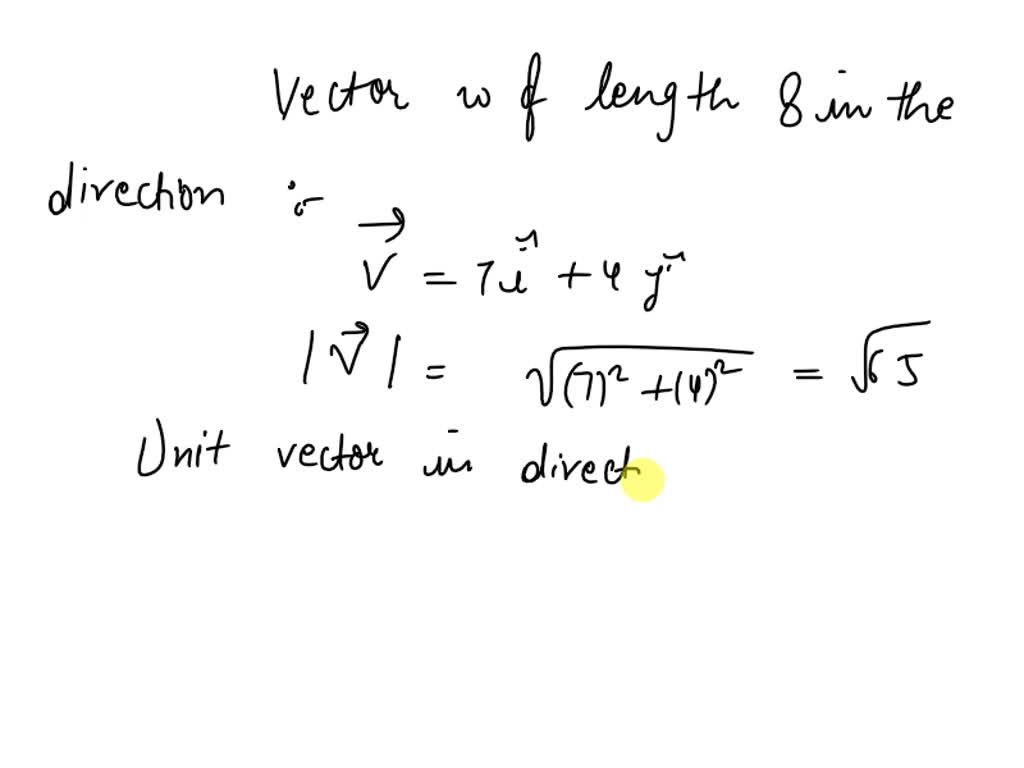 Vector w of length 8 in the
direction :-
→V = 7î + 4ĵ
|→V| = √(7)² + (4)² = √65
Unit vector in direct